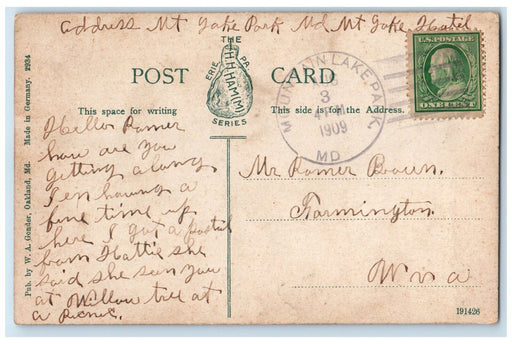 address Mt Lake Park Md Mt Lake Hotel
POST CARD
THE
ERIE PA.
H.H.HAM(M)
SERIES
This space for writing
This side is for the Address.
MOUNTAIN LAKE PARK,
3
1909
MD
U.S. POSTAGE
ONE CENT
Hello Romer
how are you
getting along
I en having a
fine time up
here I got a postal
from Hattie she
said she seen you
at Willow tree at
a Picnic.
Mr Romer Bowen.
Farmington.
W va
Pub. by W. A. Gonder, Oakland, Md. Made in Germany. 2934
191426